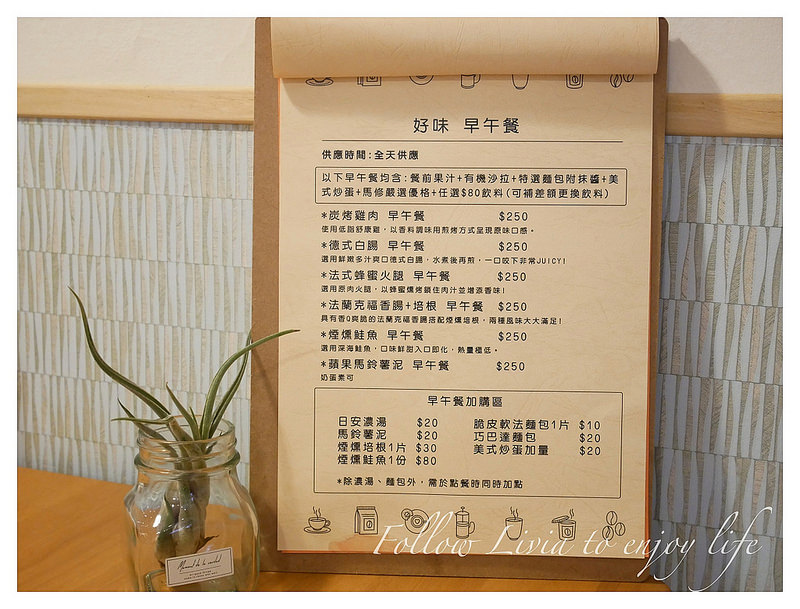 好味 早午餐
供應時間:全天供應
以下早午餐均含:餐前果汁+有機沙拉+特選麵包附抹醬+美
式炒蛋+馬修嚴選優格+任選$80飲料(可補差額更換飲料)
*炭烤雞肉 早午餐 $250
使用低脂舒康雞，以香料調味用煎烤方式呈現原味口感。
*德式白腸 早午餐 $250
選用鮮嫩多汁爽口德式白腸，水煮後再煎，一口咬下非常JUICY!
*法式蜂蜜火腿 早午餐 $250
選用原肉火腿，以蜂蜜燻烤鎖住肉汁並增添香味!
*法蘭克福香腸+培根 早午餐 $250
具有香Q爽脆的法蘭克福香腸搭配煙燻培根，兩種風味大大滿足!
*煙燻鮭魚 早午餐 $250
選用深海鮭魚，口味鮮甜入口即化，熱量極低。
*蘋果馬鈴薯泥 早午餐 $250
奶蛋素可
早午餐加購區
日安濃湯 $20 脆皮軟法麵包1片 $10
馬鈴薯泥 $20 巧巴達麵包 $20
煙燻培根1片 $30 美式炒蛋加量 $20
煙燻鮭魚1份 $80
*除濃湯、麵包外，需於點餐時同時加點
Follow Livia to enjoy life